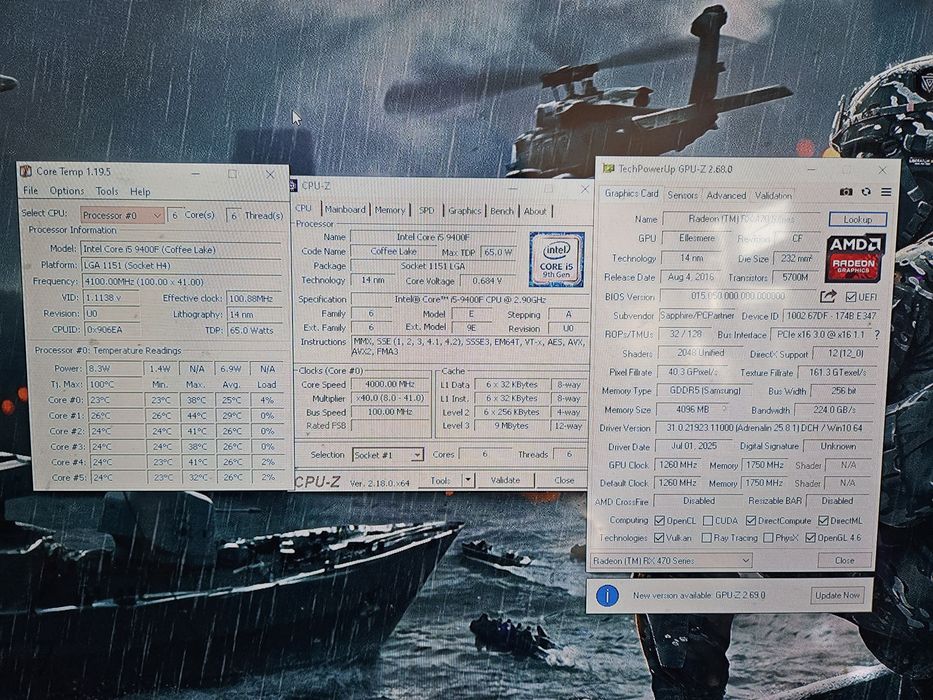 Core Temp 1.19.5
File Options Tools Help
Select CPU: Processor #0 6 Core(s) 6 Thread(s)
Processor Information
Model: Intel Core i5 9400F (Coffee Lake)
Platform: LGA 1151 (Socket H4)
Frequency: 4100.00MHz (100.00 x 41.00)
VID: 1.1138 v Effective clock: 100.88MHz
Revision: U0 Lithography: 14 nm
CPUID: 0x906EA TDP: 65.0 Watts
Processor #0: Temperature Readings
Power: 8.3W 1.4W N/A 6.9W N/A
Tj. Max: 100°C Min. Max. Avg. Load
Core #0: 23°C 23°C 38°C 25°C 4%
Core #1: 26°C 26°C 44°C 29°C 0%
Core #2: 24°C 24°C 41°C 26°C 0%
Core #3: 24°C 24°C 38°C 26°C 0%
Core #4: 24°C 23°C 41°C 26°C 2%
Core #5: 24°C 23°C 32°C 26°C 2%
CPU-Z
CPU Mainboard Memory SPD Graphics Bench About
Processor
Name Intel Core i5 9400F
Code Name Coffee Lake Max TDP 65.0 W
Package Socket 1151 LGA
Technology 14 nm Core Voltage 0.684 V
(intel)
CORE i5
9th Gen
Specification Intel® Core™ i5-9400F CPU @ 2.90GHz
Family 6 Model E Stepping A
Ext. Family 6 Ext. Model 9E Revision U0
Instructions MMX, SSE (1, 2, 3, 4.1, 4.2), SSSE3, EM64T, VT-x, AES, AVX,
AVX2, FMA3
Clocks (Core #0)
Core Speed 4000.00 MHz
Multiplier x40.0 (8.0 - 41.0)
Bus Speed 100.00 MHz
Rated FSB
Cache
L1 Data 6 x 32 KBytes 8-way
L1 Inst. 6 x 32 KBytes 8-way
Level 2 6 x 256 KBytes 4-way
Level 3 9 MBytes 12-way
Selection Socket #1 Cores 6 Threads 6
CPU-Z Ver. 2.18.0.x64 Tools Validate Close
TechPowerUp GPU-Z 2.68.0
Graphics Card Sensors Advanced Validation
Name Radeon (TM) RX 470 Series Lookup
GPU Ellesmere Revision CF
Technology 14 nm Die Size 232 mm²
Release Date Aug 4, 2016 Transistors 5700M
AMD
RADEON
GRAPHICS
BIOS Version 015.050.000.000.000000 UEFI
Subvendor Sapphire/PCPartner Device ID 1002 67DF - 174B E347
ROPs/TMUs 32 / 128 Bus Interface PCIe x16 3.0 @ x16 1.1 ?
Shaders 2048 Unified DirectX Support 12 (12_0)
Pixel Fillrate 40.3 GPixel/s Texture Fillrate 161.3 GTexel/s
Memory Type GDDR5 (Samsung) Bus Width 256 bit
Memory Size 4096 MB Bandwidth 224.0 GB/s
Driver Version 31.0.21923.11000 (Adrenalin 25.8.1) DCH / Win10 64
Driver Date Jul 01, 2025 Digital Signature Unknown
GPU Clock 1260 MHz Memory 1750 MHz Shader N/A
Default Clock 1260 MHz Memory 1750 MHz Shader N/A
AMD CrossFire Disabled Resizable BAR Disabled
Computing OpenCL CUDA DirectCompute DirectML
Technologies Vulkan Ray Tracing PhysX OpenGL 4.6
Radeon (TM) RX 470 Series Close
New version available: GPU-Z 2.69.0 Update Now